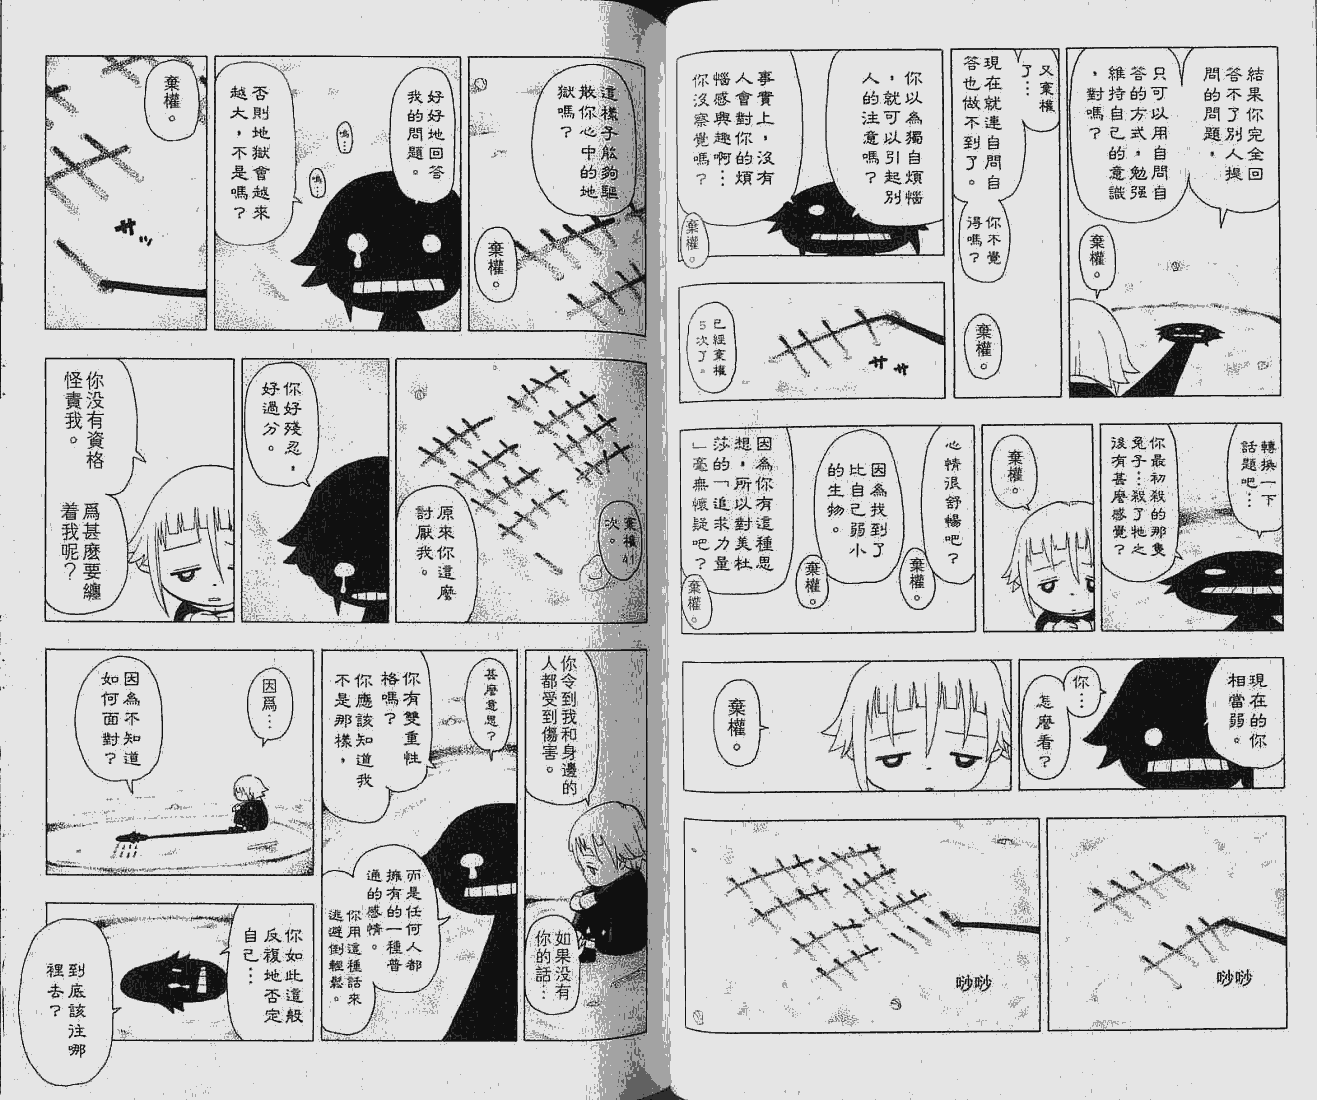 結果你完全回
答不了別人提
問的問題，
只可以用自問自
答的方式，勉强
維持自己的意識
，對嗎？
棄權。
又棄權
了…
現在就連自問自
答也做不到了。
你不覺
得嗎？
棄權。
你以為獨自煩惱
，就可以引起別
人的注意嗎？
事實上，沒有
人會對你的煩
惱感興趣啊…
你沒察覺嗎？
棄權。
ササ
已經棄權
5次了。
轉換一下
話題吧…
你最初殺的那隻
兔子…殺了牠之
後有甚麼感覺？
棄權。
心情很舒暢吧？
棄權。
因為找到了
比自己弱小
的生物。
棄權。
因為你有這種思
想，所以對美杜
莎的「追求力量
」毫無懷疑吧？
棄權。
現在的你
相當弱。
你…
怎麼看？
棄權。
唦唦
唦唦
這樣子能夠驅
散你心中的地
獄嗎？
棄權。
好好地回答
我的問題。
嗚…
嗚…
否則地獄會越來
越大，不是嗎？
棄權。
サッ
棄權41
次。
原來你這麼
討厭我。
你好殘忍，
好過分。
你没有資格
怪責我。
爲甚麼要纏
着我呢？
你令到我和身邊的
人都受到傷害。
如果没有
你的話…
甚麼意思？
你有雙重性
格嗎？
你應該知道我
不是那樣，
而是任何人都
擁有的一種普
通的感情。
你用這種話來
逃避倒輕鬆。
因爲…
因為不知道
如何面對？
你如此這般
反複地否定
自己…
到底該往哪
裡去？